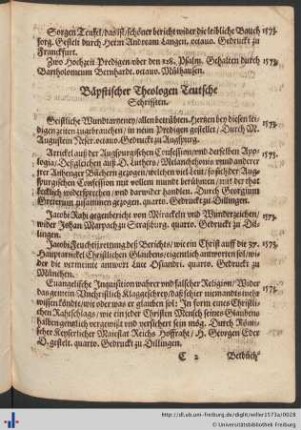 Sorgen Teufel/ das ist/ schöner bericht wider die leibliche Bauch
sorg. Gestelt durch Herrn Andream Langen. octauo. Gedruckt zu
Franckfurt.
1573.
Zwo Hochzeit Predigen/ vber den 128. Psalm. Gehalten durch
Bartholomeum Bernhardt. octauo. Mülhausen.
1573.
Bäpstischer Theologen Teutsche
Schrifften.
Geistliche Wundtartzeney/ allen betrübten Hertzen bey diesen lei-
digen zeiten zugebrauchen/ in neun Predigen gestellet/ Durch M.
Augustum Neser. octauo. Gedruckt zu Augspurg.
1573.
Artickel auß der Augspurgischen Confession/ vnd derselben Appo-
logia/ Desgleichen auß D. Luthers/ Melanchthonis vnnd anderer
irer Anhenger Büchern gezogen/ welchen viel/ so sich der Aug-
spurgischen Confession mit vollem munde berühmen/ mit der that
öntlich widersprechen/ vnd darwider handlen. Durch Georgium
zusammen gezogen. quarto. Gedruckt zu Dillingen.
Jacobi Rabi gegenbericht von Mirackeln vnd Wunderzeichen/
wider Johan Marpach zu Straßburg. quarto. Gedruckt zu Di-
lingen.
Jacobi Feuchtij rettung deß Berichts/ wie ein Christ auff die 37.
Hauptartickel Christlichen Glaubens/ eigentlich antworten sol/ wi-
der die vermeinte antwort Luce Osiandri. quarto. Gedruckt zu
München.
Euangelische Inquisition wahrer vnd falscher Religion/ Wider
das gemein vnchristlich Klaggeschrey/ daß schier niemandts mehr
wissen könde/ wie oder was er glauben sol: In form eines Christli-
chen Rahtschlags/ wie ein jeder Christen Mensch seines Glaubens
halben gentzlich vergwist vnd versichert sein mög. Durch Römi-
scher Keyserlicher Maiestat Reichs Hoffraht/ H. Georgen Eder
D. gestelt. quarto. Gedruckt zu Dillingen.
1573.
C 2
http://dl.ub.uni-freiburg.de/diglit/willer1573a/0028
© Universitätsbibliothek Freiburg